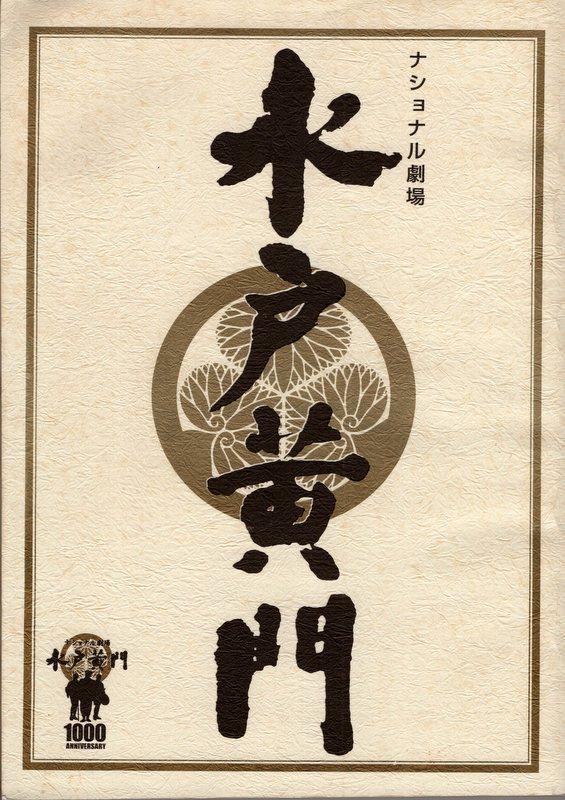 ナショナル劇場
水戸黄門
ナショナル劇場
水戸黄門
1000
ANNIVERSARY